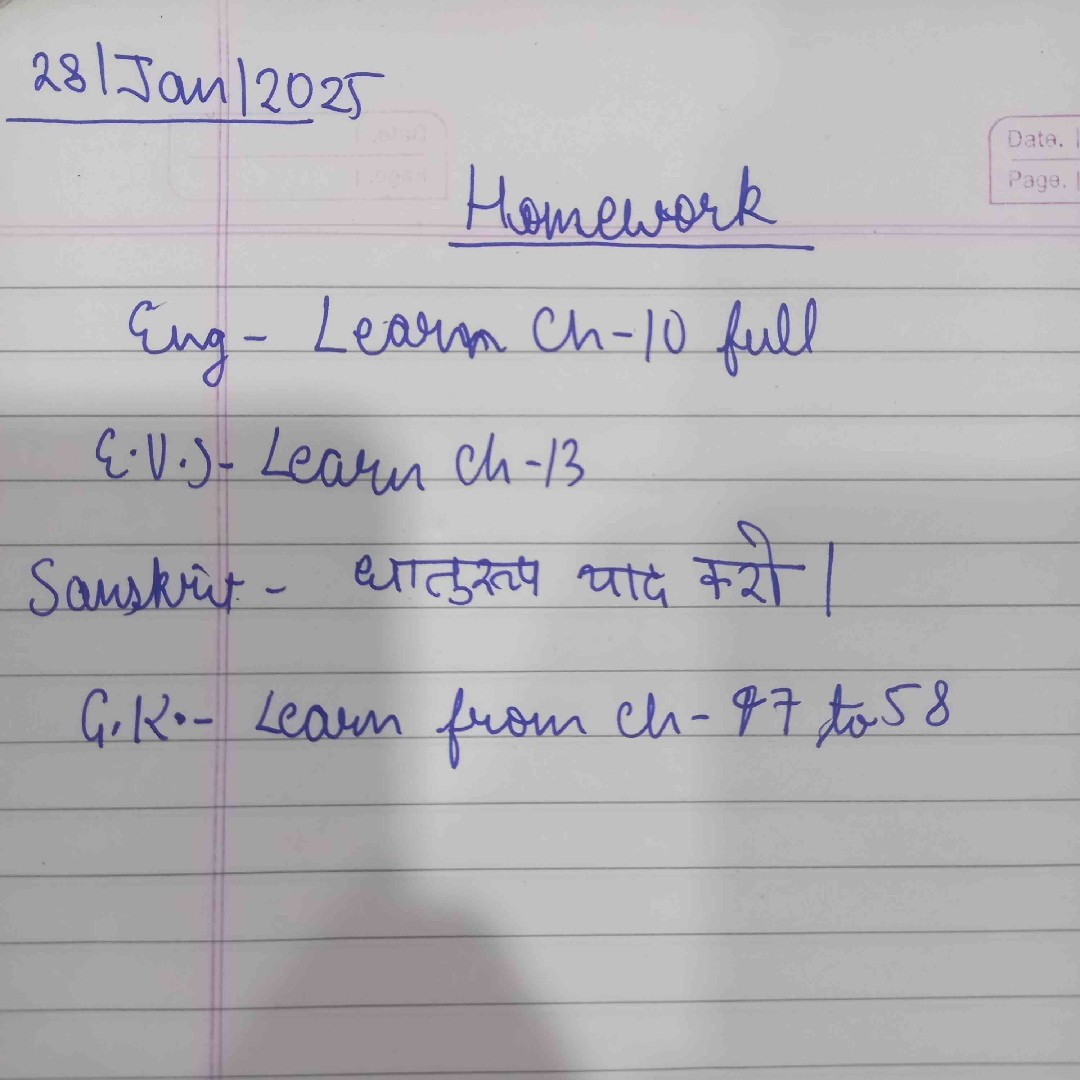 28/Jan/2025
Date.
Page.
Homework
Eng - Learn Ch-10 full
E.V.S - Learn Ch-13
Sanskrit - धातुरूप याद करो।
G.K. - Learn from Ch- to 58